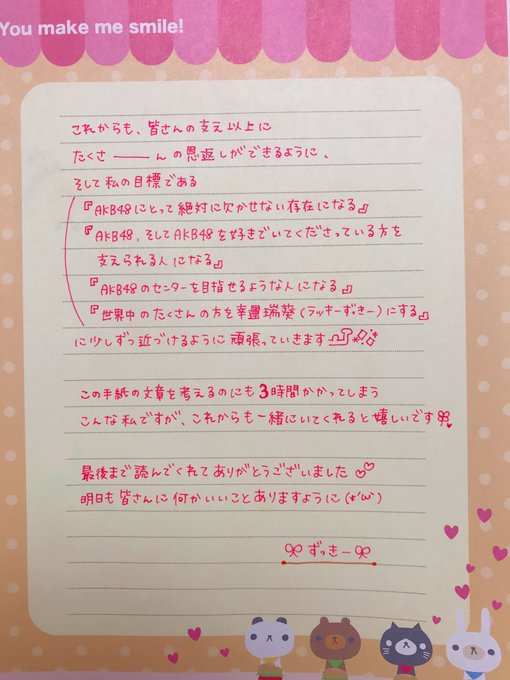 You make me smile!
これからも、皆さんの支え以上に
たくさ―――んの恩返しができるように、
そして私の目標である
『AKB48にとって絶対に欠かせない存在になる』
『AKB48,そしてAKB48を好きでいてくださっている方を
支えられる人になる』
『AKB48のセンターを目指せるような人になる』
『世界中のたくさんの方を幸運瑞葵(ラッキーずっきー)にする』
に少しずつ近づけるように頑張っていきます
この手紙の文章を考えるのにも3時間かかってしまう
こんな私ですが、これからも一緒にいてくれると嬉しいです
最後まで読んでくれてありがとうございました♡♡
明日も皆さんに何かいいことありますように(*'ω')
ずっきー